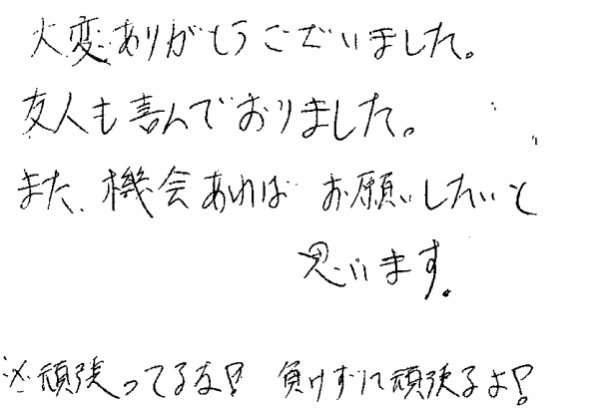 大変ありがとうございました。
友人も喜んでおりました。
また、機会あれば お願いしたいと
思います。
※頑張ってるな! 負けずに頑張るよ!